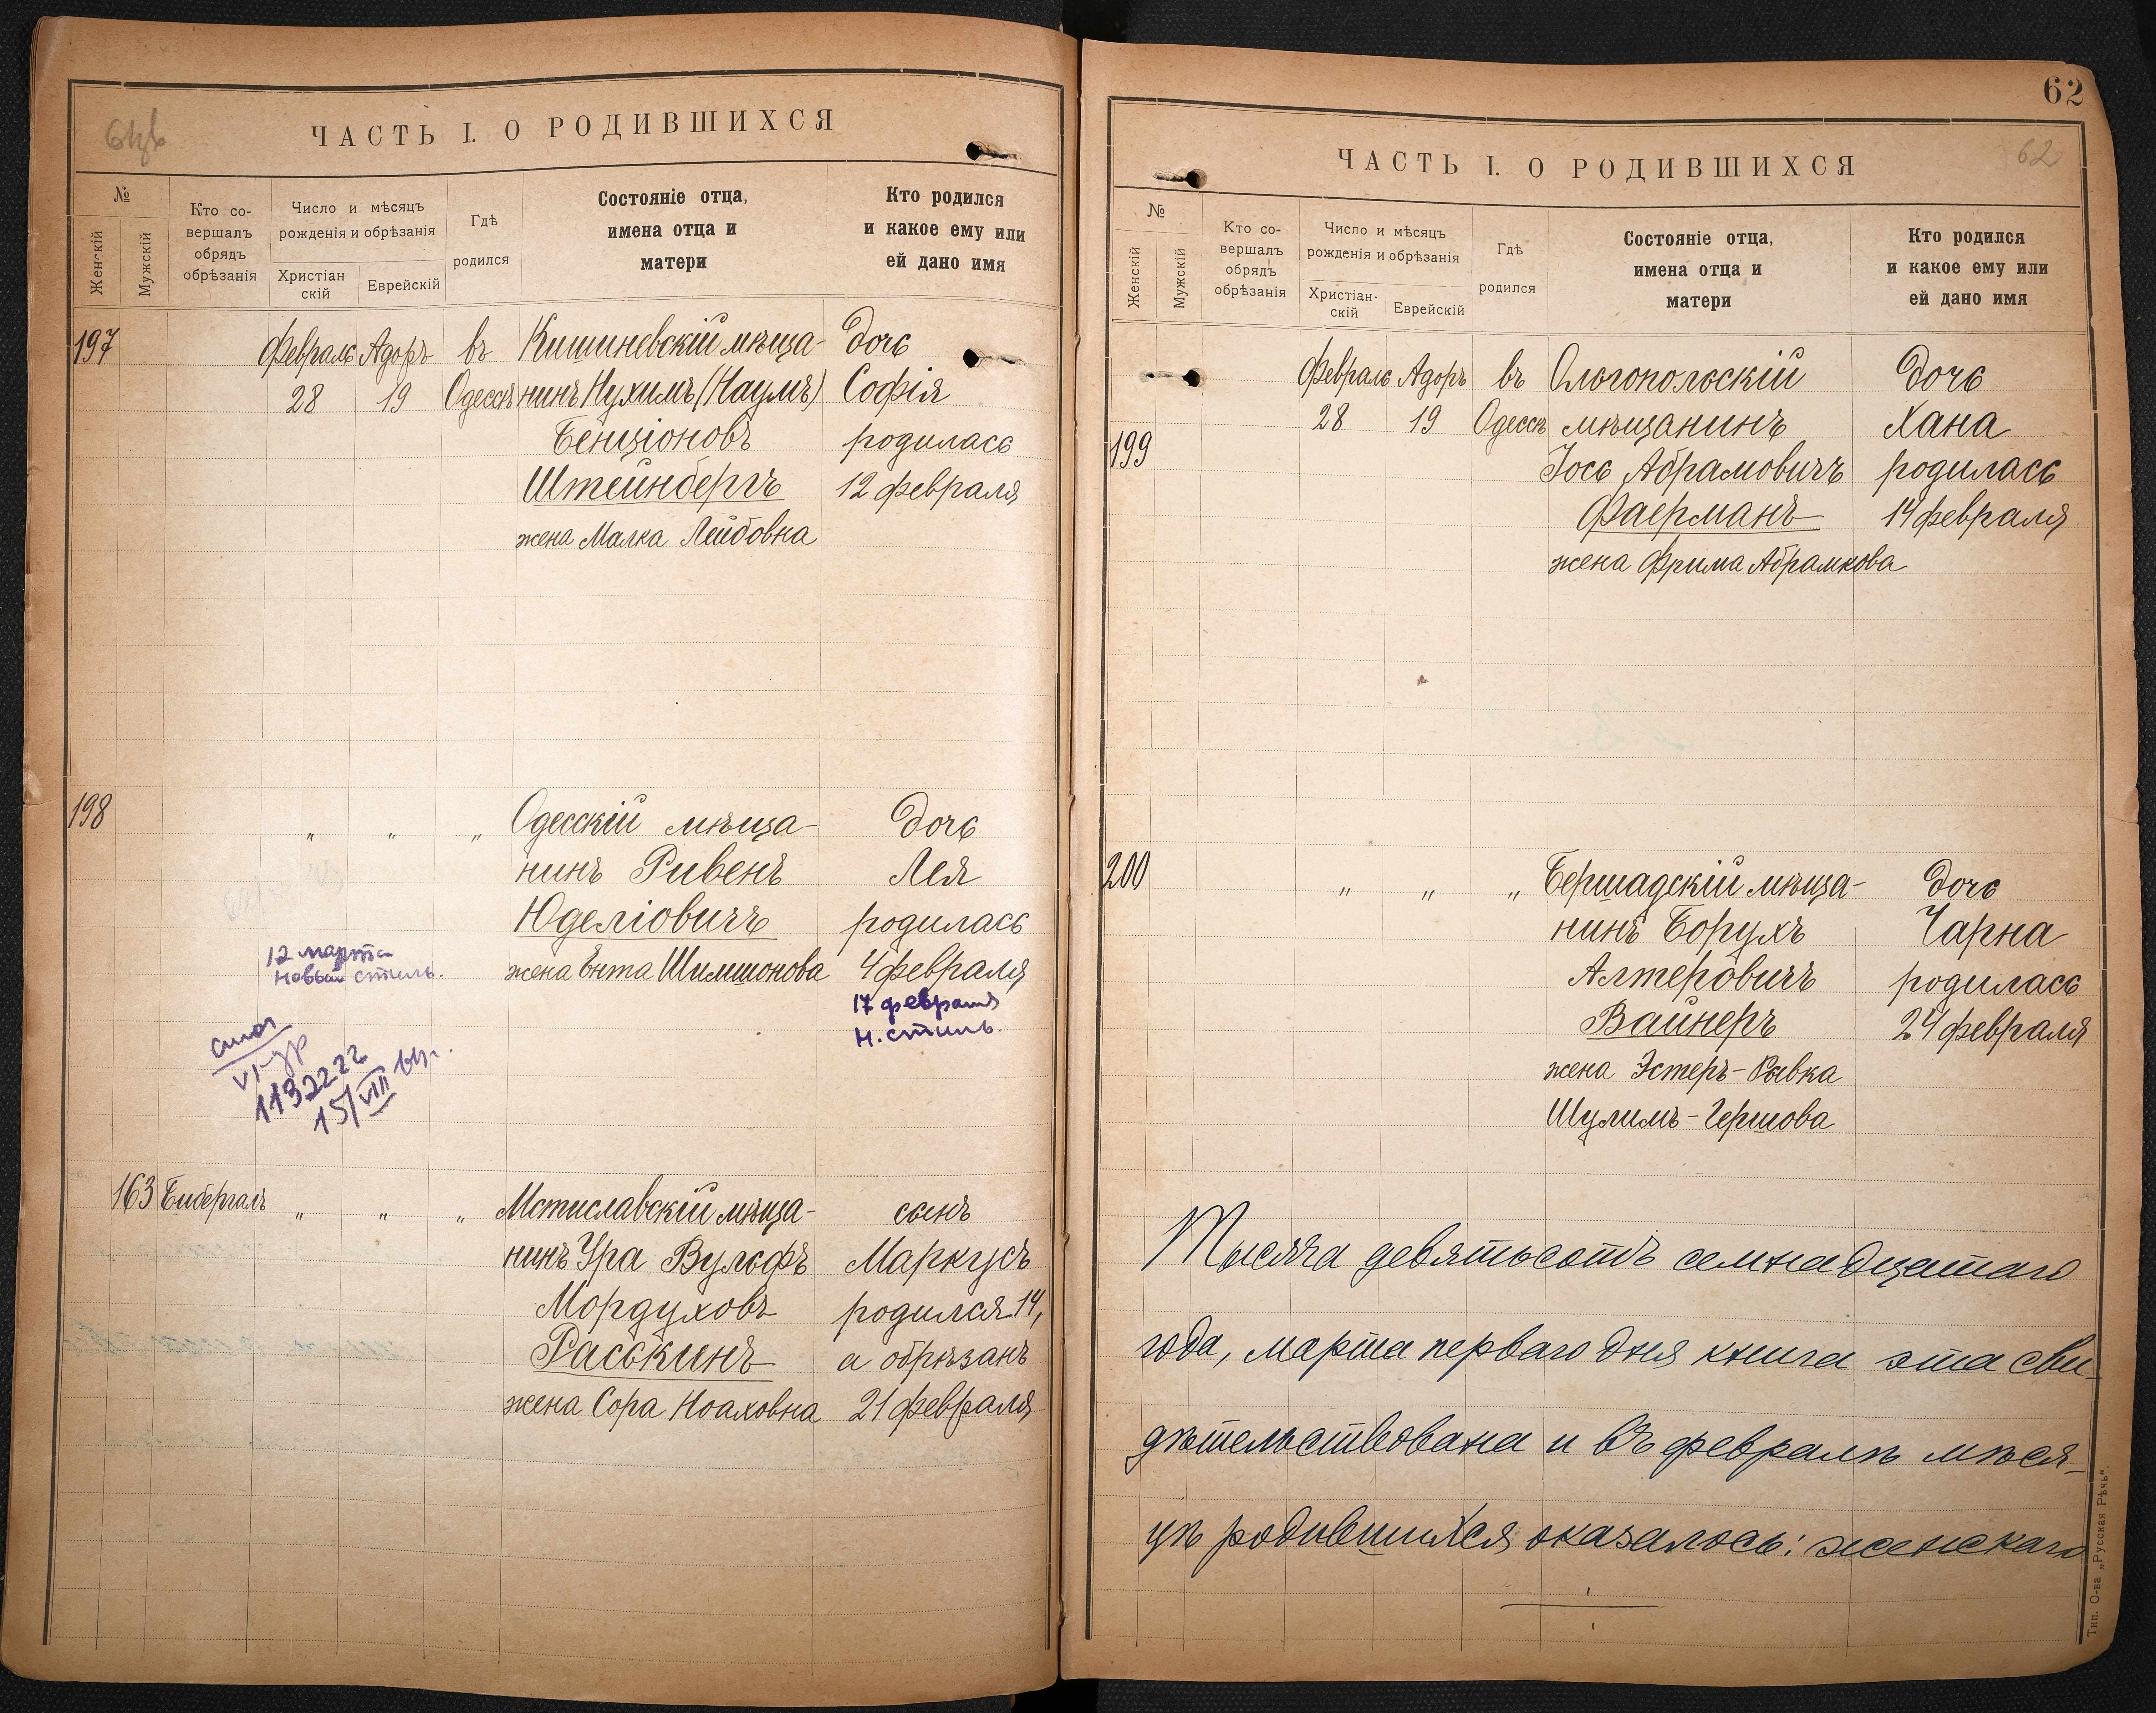 ЧАСТЬ I. О РОДИВШИХСЯ
№
Женскій
Мужскій
Кто со-
вершалъ
обрядъ
обрѣзанія
Число и мѣсяцъ
рожденія и обрѣзанія
Христіан
скій
Еврейскій
Гдѣ
родился
Состояніе отца,
имена отца и
матери
Кто родился
и какое ему или
ей дано имя
197 Февраль Адоръ въ Кишиневскій мѣща- дочь
28 19 Одессѣ нинъ Нухимъ (Наумъ) Софія
Бенціоновъ родилась
Штейнбергъ 12 февраля
жена Малка Лейбовна
198 " " " Одесскій мѣща- дочь
нинъ Ривенъ Лея
Юделіовичъ родилась
жена Ента Шимшонова 4 февраля
12 марта
новый стиль.
17 февраля
н. стиль.
1132222
15/VIII
163 Бибергалъ " " " Мстиславскій мѣща- сынъ
нинъ Ура Вульфъ Маркусъ
Мордуховъ родился 14,
Раськинъ а обрѣзанъ
жена Сора Ноаховна 21 февраля
62
ЧАСТЬ I. О РОДИВШИХСЯ
62
№
Женскій
Мужскій
Кто со-
вершалъ
обрядъ
обрѣзанія
Число и мѣсяцъ
рожденія и обрѣзанія
Христіан-
скій
Еврейскій
Гдѣ
родился
Состояніе отца,
имена отца и
матери
Кто родился
и какое ему или
ей дано имя
Февраль Адоръ въ Ольгопольскій дочь
28 19 Одессѣ мѣщанинъ Хана
199 Іось Абрамовичъ родилась
Фаерманъ 14 февраля
жена Фрима Абрамкова
200 " " " Бершадскій мѣща- дочь
нинъ Борухъ Чарна
Алтеровичъ родилась
Вайнеръ 24 февраля
жена Эстеръ-Рывка
Шулимъ-Гершова
Тысяча девятьсотъ семнадцатаго
года, марта перваго дня книга эта сви-
дѣтельствована и въ февралѣ мѣся-
цѣ родившихся оказалось: женскаго
Тип. О-ва „Русская Рѣчь“.